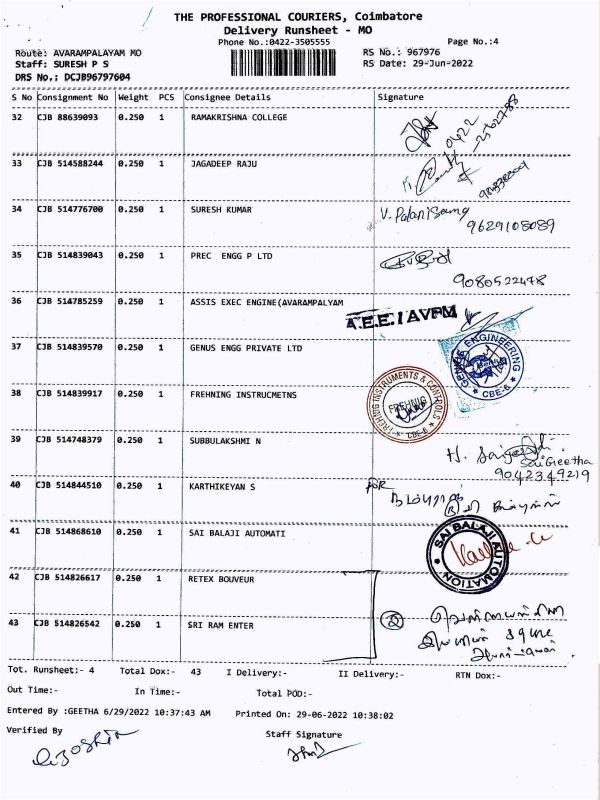 THE PROFESSIONAL COURIERS, Coimbatore
Delivery Runsheet - MO
Phone No.:0422-3505555
Page No.:4
Route: AVARAMPALAYAM MO
RS No.: 967976
Staff: SURESH P S
RS Date: 29-Jun-2022
DRS No.: DCJB96797604
S No Consignment No Weight PCS Consignee Details Signature
32 CJB 88639093 0.250 1 RAMAKRISHNA COLLEGE
0422
33 CJB 514588244 0.250 1 JAGADEEP RAJU
34 CJB 514776700 0.250 1 SURESH KUMAR V. Palanisamy
9629108089
35 CJB 514839043 0.250 1 PREC ENGG P LTD
9080522478
36 CJB 514785259 0.250 1 ASSIS EXEC ENGINE(AVARAMPALYAM
A.E.E. / AVPM
37 CJB 514839570 0.250 1 GENUS ENGG PRIVATE LTD
GENUS ENGINEERING
CBE-6
38 CJB 514839917 0.250 1 FREHNING INSTRUCMETNS
FREHNIG INSTRUMENTS & CONTROLS
FREHNIG
CBE-6
39 CJB 514748379 0.250 1 SUBBULAKSHMI N
SaiGeetha
9042349219
40 CJB 514844510 0.250 1 KARTHIKEYAN S for
41 CJB 514868610 0.250 1 SAI BALAJI AUTOMATI
SAI BALAJI AUTOMATION
42 CJB 514826617 0.250 1 RETEX BOUVEUR
43 CJB 514826542 0.250 1 SRI RAM ENTER
Tot. Runsheet:- 4 Total Dox:- 43 I Delivery:- II Delivery:- RTN Dox:-
Out Time:- In Time:- Total POD:-
Entered By :GEETHA 6/29/2022 10:37:43 AM Printed On: 29-06-2022 10:38:02
Verified By Staff Signature